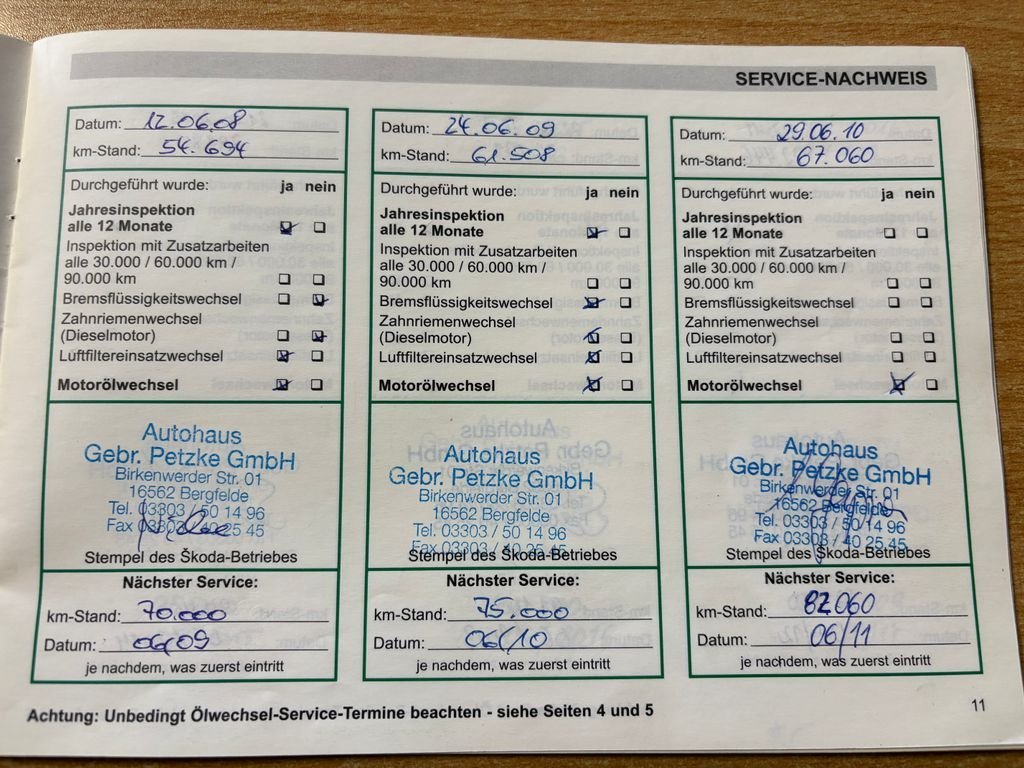 SERVICE-NACHWEIS
Datum: 12.06.08
km-Stand: 54.694
Durchgeführt wurde: ja nein
Jahresinspektion
alle 12 Monate
Inspektion mit Zusatzarbeiten
alle 30.000 / 60.000 km /
90.000 km
Bremsflüssigkeitswechsel
Zahnriemenwechsel
(Dieselmotor)
Luftfiltereinsatzwechsel
Motorölwechsel
Autohaus
Gebr. Petzke GmbH
Birkenwerder Str. 01
16562 Bergfelde
Tel. 03303 / 50 14 96
Fax 03303 / 40 25 45
Stempel des Škoda-Betriebes
Nächster Service:
km-Stand: 70.000
Datum: 06/09
je nachdem, was zuerst eintritt
Datum: 24.06.09
km-Stand: 61.508
Durchgeführt wurde: ja nein
Jahresinspektion
alle 12 Monate
Inspektion mit Zusatzarbeiten
alle 30.000 / 60.000 km /
90.000 km
Bremsflüssigkeitswechsel
Zahnriemenwechsel
(Dieselmotor)
Luftfiltereinsatzwechsel
Motorölwechsel
Autohaus
Gebr. Petzke GmbH
Birkenwerder Str. 01
16562 Bergfelde
Tel. 03303 / 50 14 96
Fax 03303 / 40 25 45
Stempel des Škoda-Betriebes
Nächster Service:
km-Stand: 75.000
Datum: 06/10
je nachdem, was zuerst eintritt
Datum: 29.06.10
km-Stand: 67.060
Durchgeführt wurde: ja nein
Jahresinspektion
alle 12 Monate
Inspektion mit Zusatzarbeiten
alle 30.000 / 60.000 km /
90.000 km
Bremsflüssigkeitswechsel
Zahnriemenwechsel
(Dieselmotor)
Luftfiltereinsatzwechsel
Motorölwechsel
Autohaus
Gebr. Petzke GmbH
Birkenwerder Str. 01
16562 Bergfelde
Tel. 03303 / 50 14 96
Fax 03303 / 40 25 45
Stempel des Škoda-Betriebes
Nächster Service:
km-Stand: 82060
Datum: 06/11
je nachdem, was zuerst eintritt
Achtung: Unbedingt Ölwechsel-Service-Termine beachten - siehe Seiten 4 und 5
11